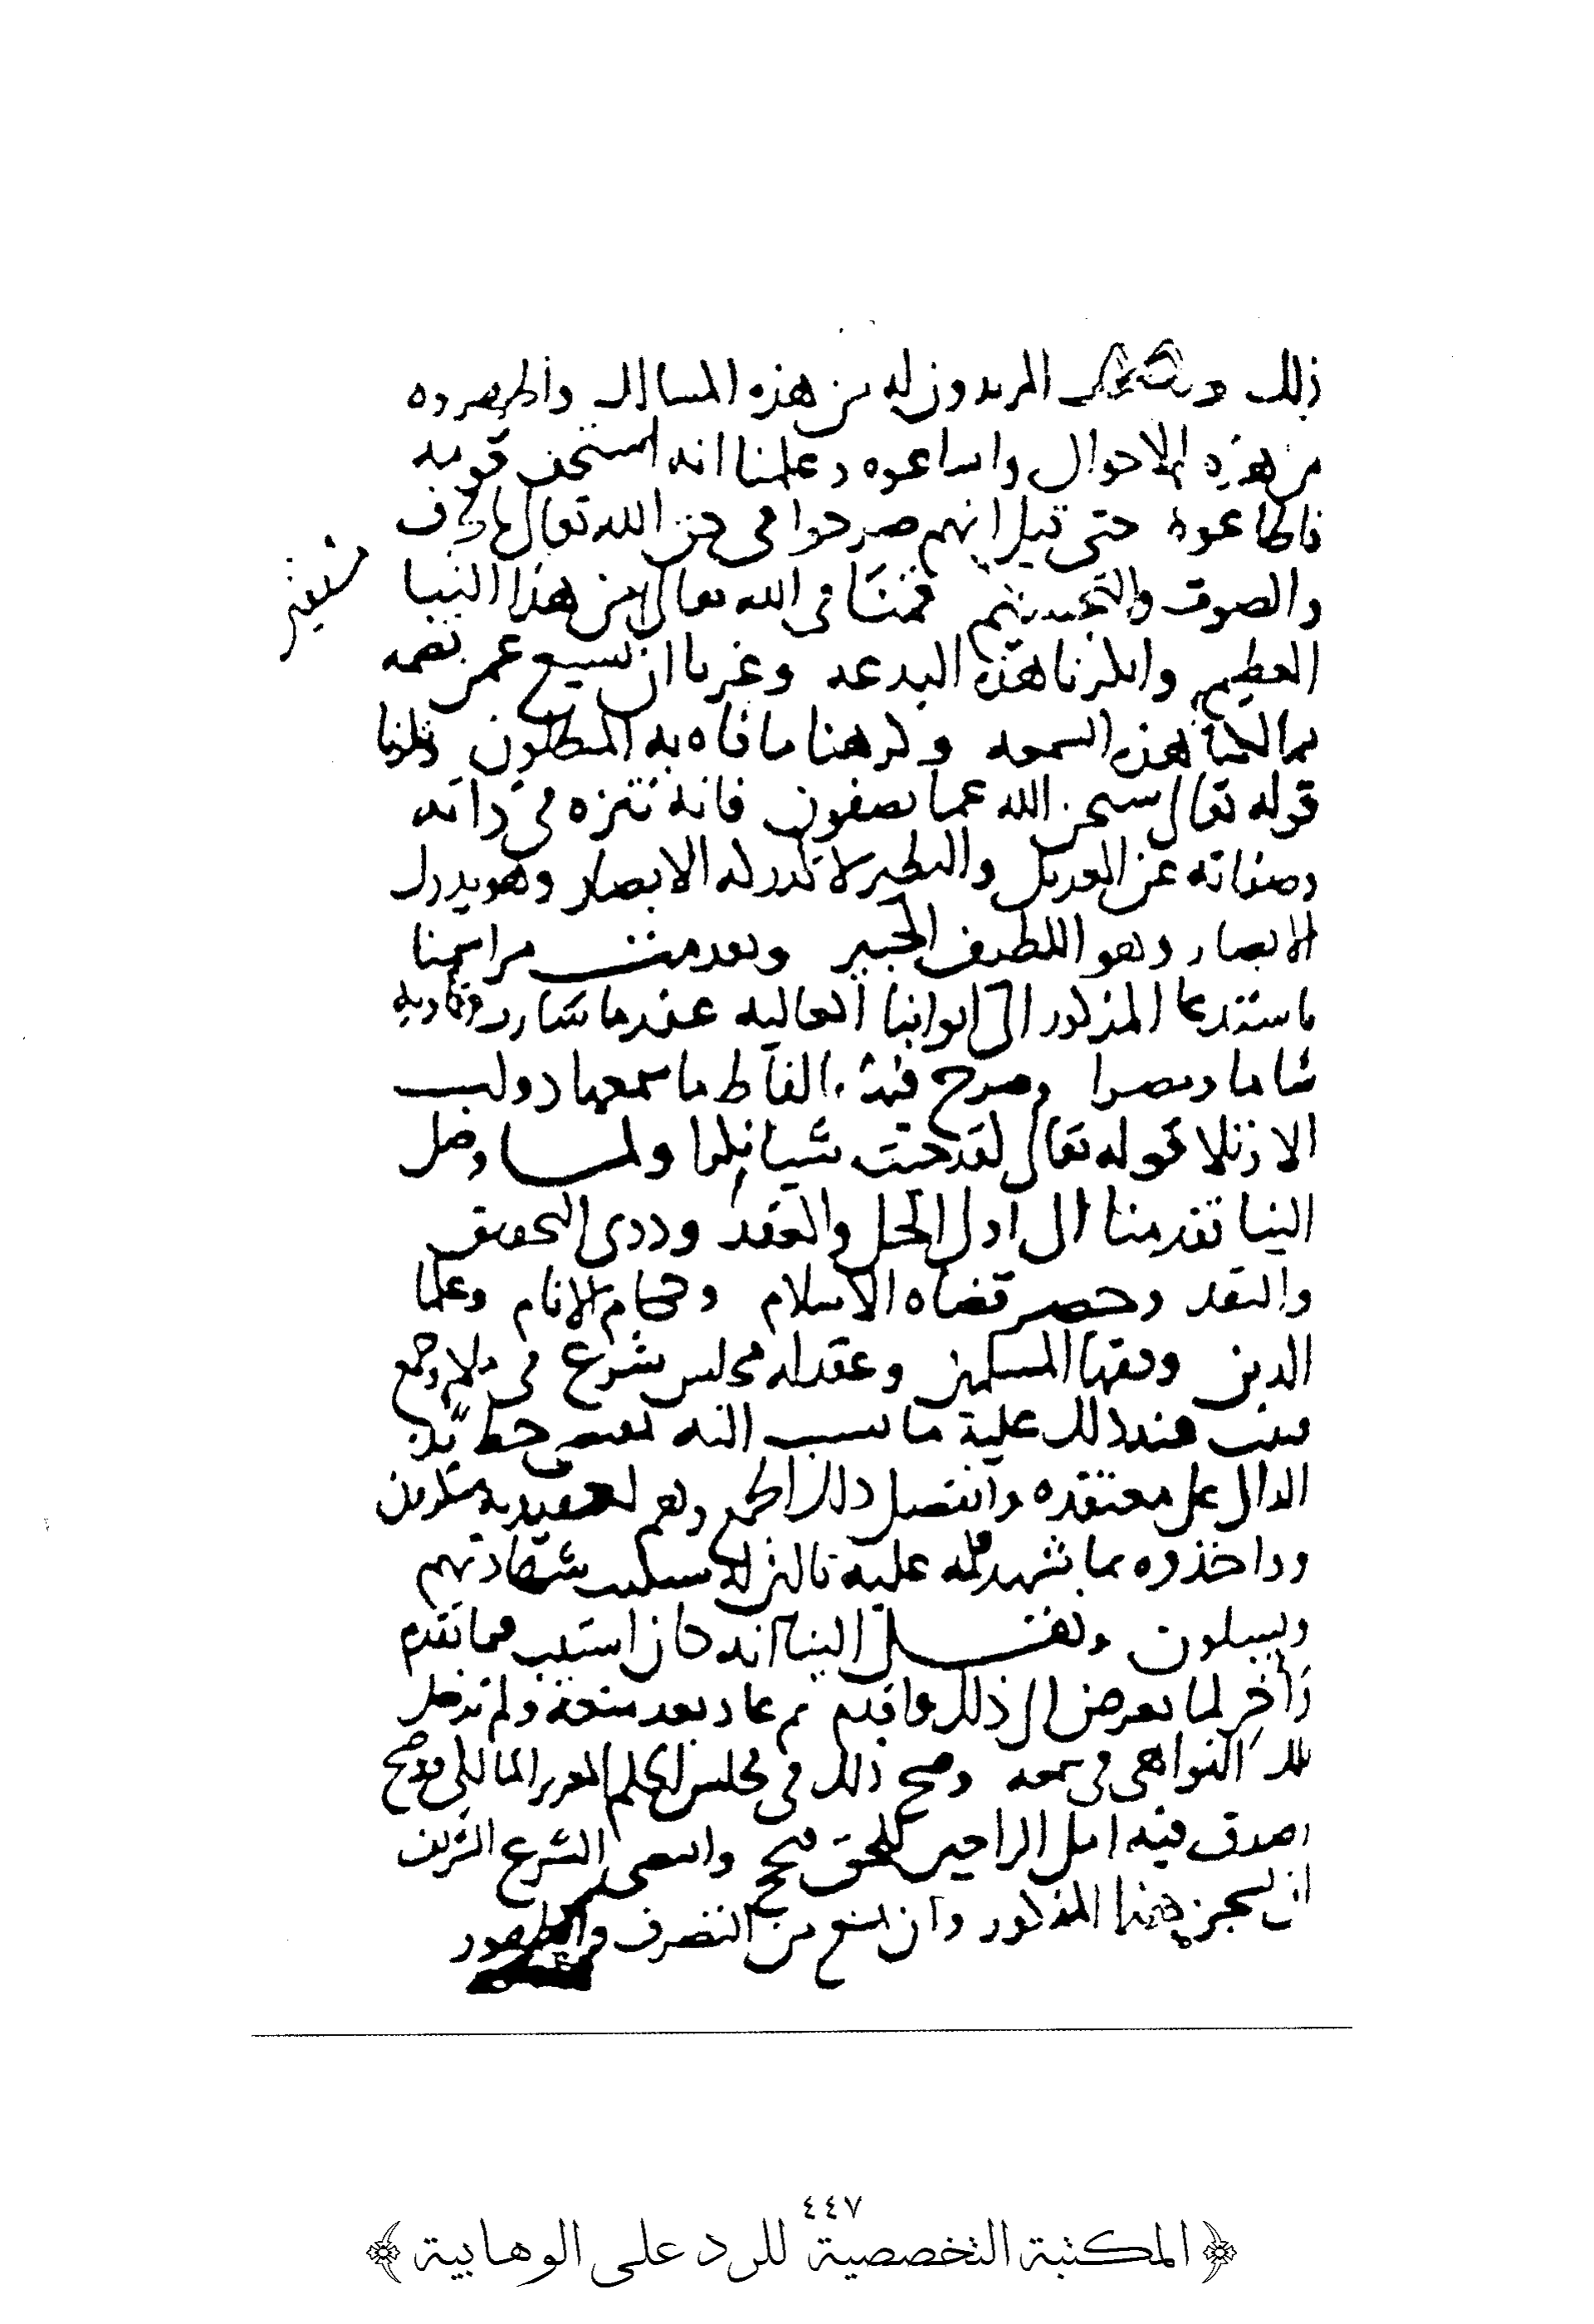 ذلك وسلك المريدون له من هذه المسالك واظهروه
من هذه الاحوال واساعوه وعلمنا انه استخف قومه
فاطاعوه حتى قيل انهم صرحوا في حق الله تعالى بالحرف
والصوت والتجسيم قمنا في الله تعالى من هذا النبا
مشفقين
العظيم وانكرنا هذه البدعه وغرنا ان يسيع عمن تضمه
ممالكنا هذه السمعه وكرهنا ما فاه به المبطلون وتلونا
قوله تعالى سبحن الله عما يصفون فانه تنزه في ذاته
وصفاته عن العديل والنظير لا تدركه الابصار وهو يدرك
الابصار وهو اللطيف الخبير وتقدمت مراسمنا
باستدعا المذكور الى ابوابنا العاليه عندما سارت فتاويه
شاما ومصرا وصرح فيها بالفاظ ما سمعها ذو لب
الا وتلا قوله تعالى لقد جيت شيا نكرا ولما وصل
الينا تقدمنا الى اولى الحل والعقد وذوي التحقيق
والنقد وحضر قضاه الاسلام وحكام الانام وعلما
الدين وفقها المسلمين وعقد له مجلس شرع في ملا وجمع
فثبت عند ذلك عليه ما نسب اليه بمقتضى خط يده
الدال على معتقده وانفصل ذلك الجمع وهم لعقيدته منكرين
وواخذوه بما شهد قلمه عليه تالين له ستكتب شهادتهم
ويسيلون ونقل الينا انه كان استتيب فيما تقدم
واخر لما تعرض الى ذلك واقدم ثم عاد بعد منعه ولم تدخل
تلك النواهي في سمعه وصح ذلك في مجلس الحكم العزيز المالكي

ان يسجن هذا المذكور وان يمنع من التصرف والظهور
٤٤٧
﴿ المكتبة التخصصية للرد على الوهابية ﴾